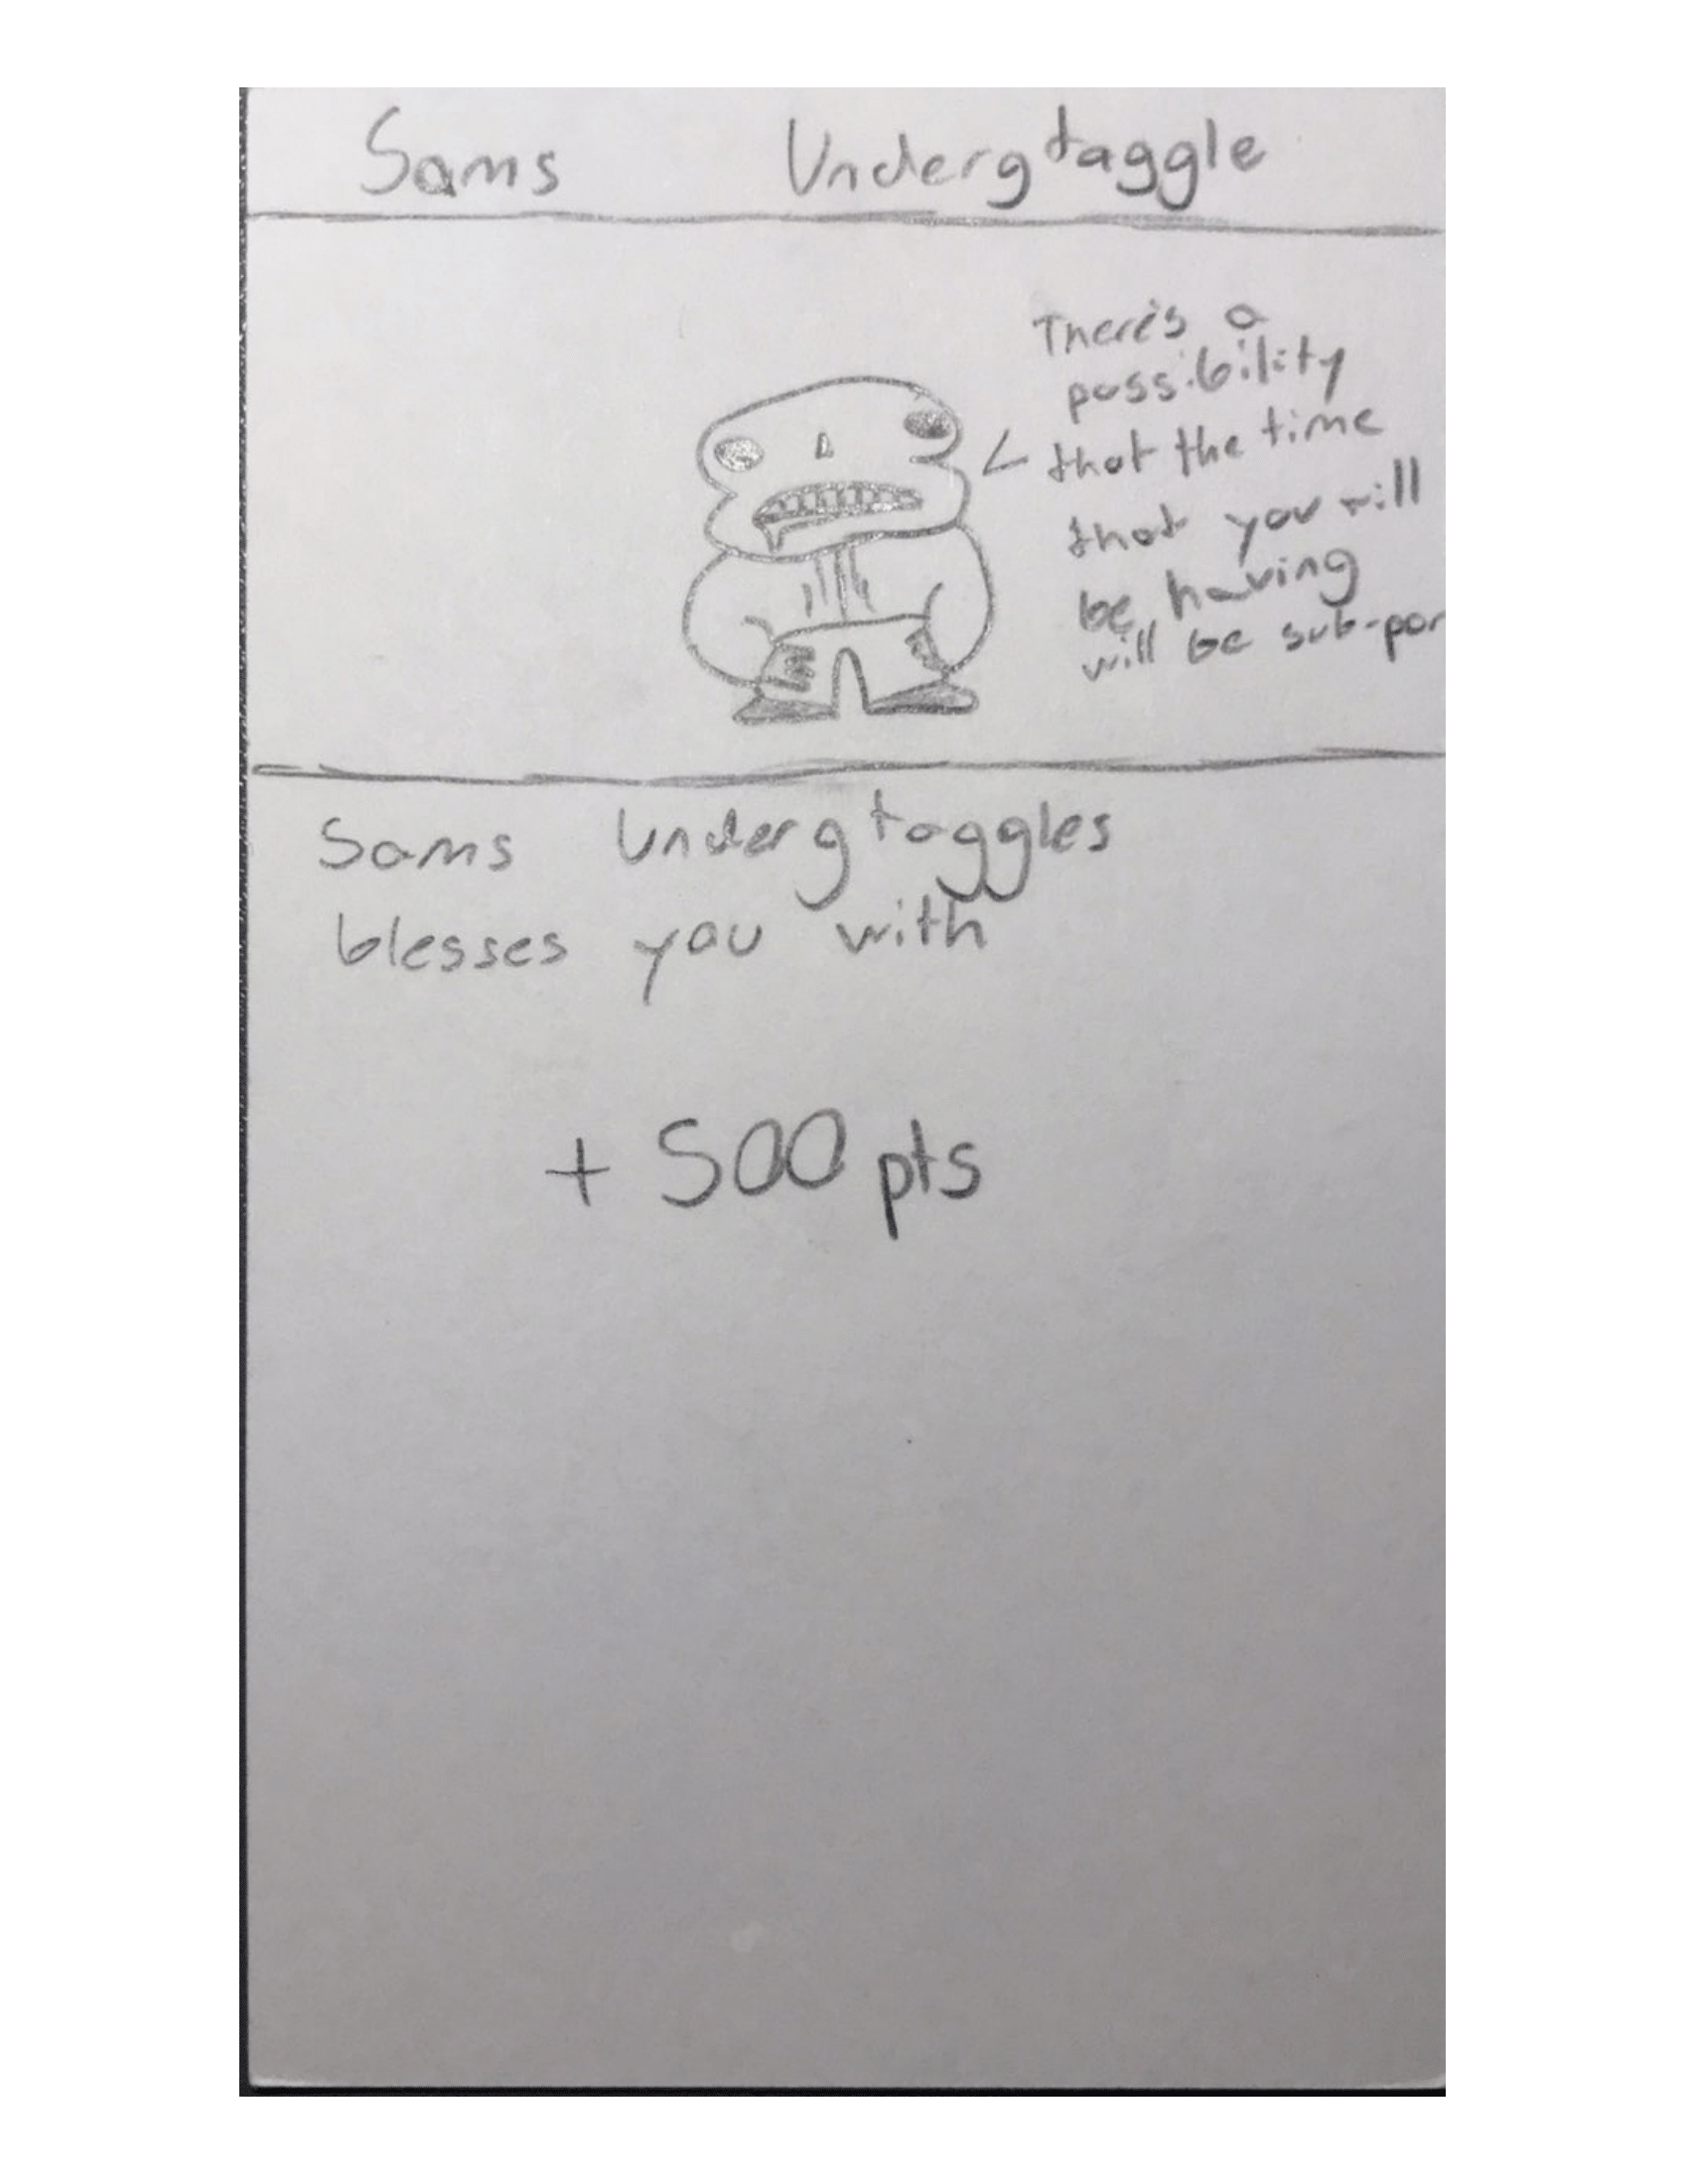 Sams Undergtaggle
There's a
possibility
that the time
that you will
be having
will be sub-par
Sams Undergtaggles
blesses you with
+ 500 pts